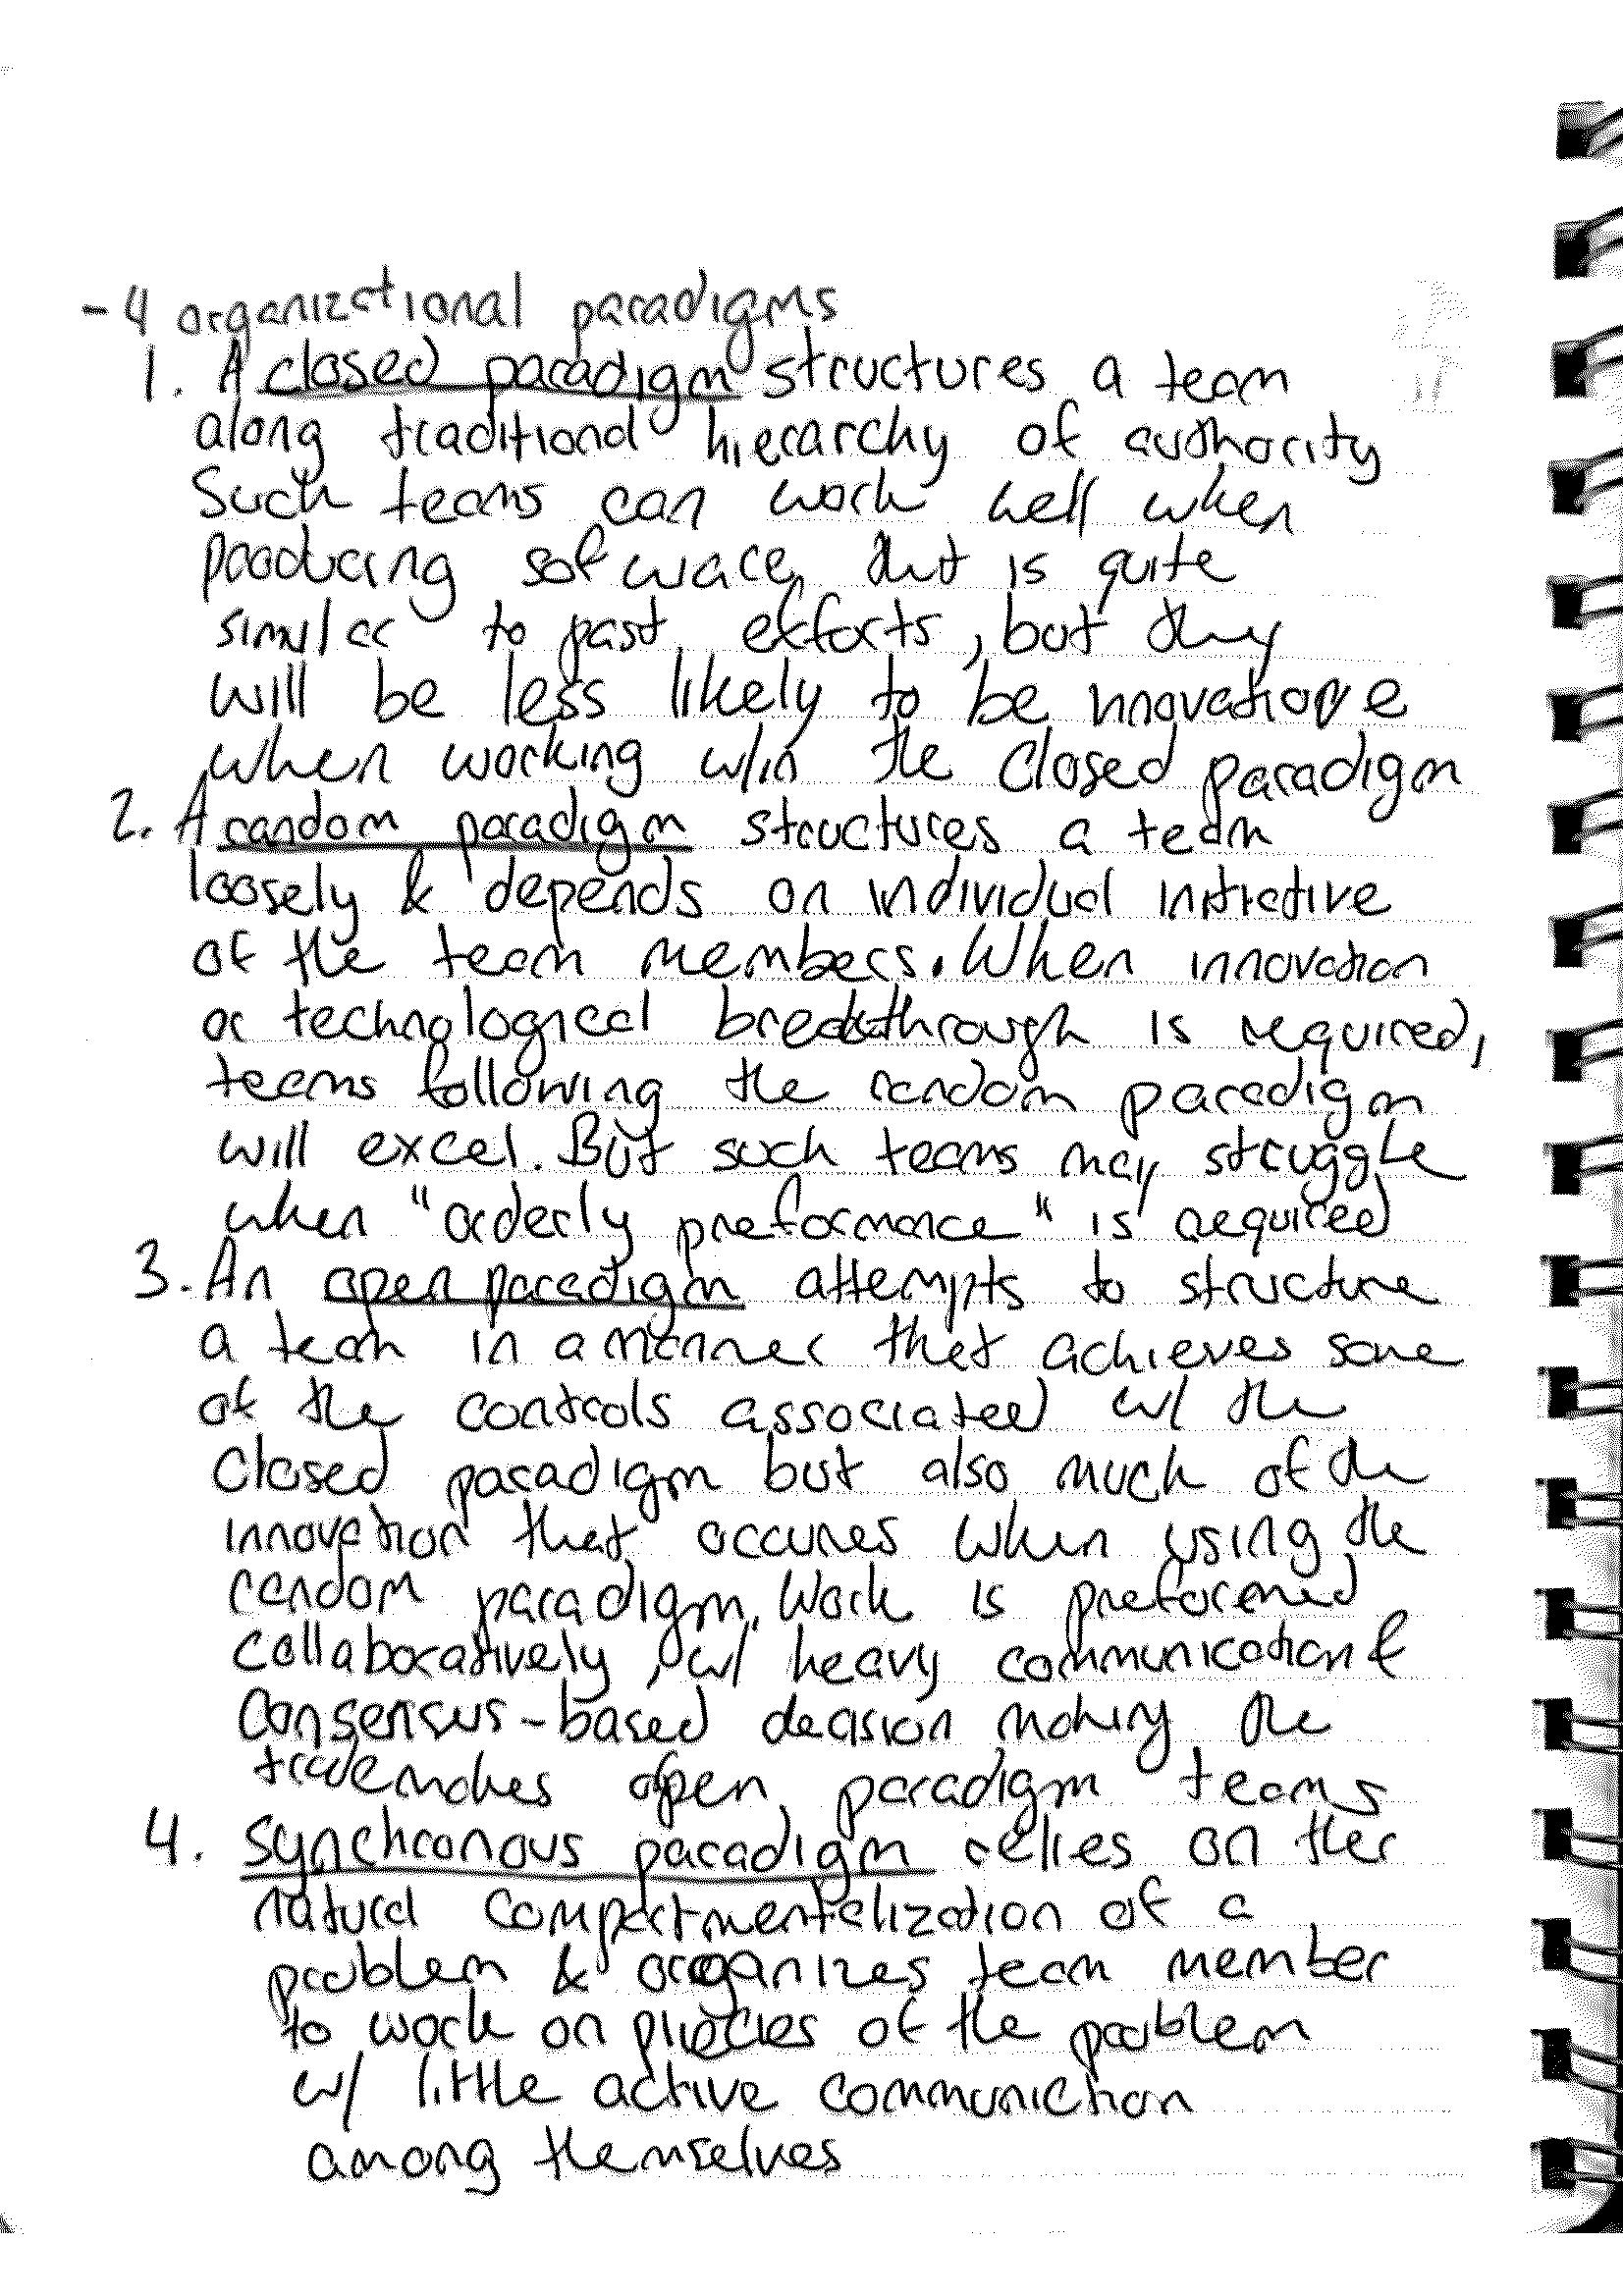 - 4 organizational paradigms
1. A closed paradigm structures a team
along traditional hierarchy of authority
Such teams can work well when
producing sofware that is quite
similar to past efforts, but they
will be less likely to be innovative
when working w/in the closed paradigm
2. A random paradigm structures a team
loosely & depends on individual initiative
of the team members. When innovation
or technological breakthrough is required,
teams following the random paradigm
will excel. But such teams may struggle
when "orderly preformance" is required
3. An open paradigm attempts to structure
a team in a manner that achieves some
of the controls associated w/ the
closed paradigm but also much of the
innovation that occures when using the
random paradigm. Work is preformed
collaboratively, w/ heavy communication &
consensus-based decision making the
trademakes open paradigm teams
4. Synchronous paradigm relies on ther
natural compartmentalization of a
problem & organizes team member
to work on pieces of the problem
w/ little active communiction
among themselves